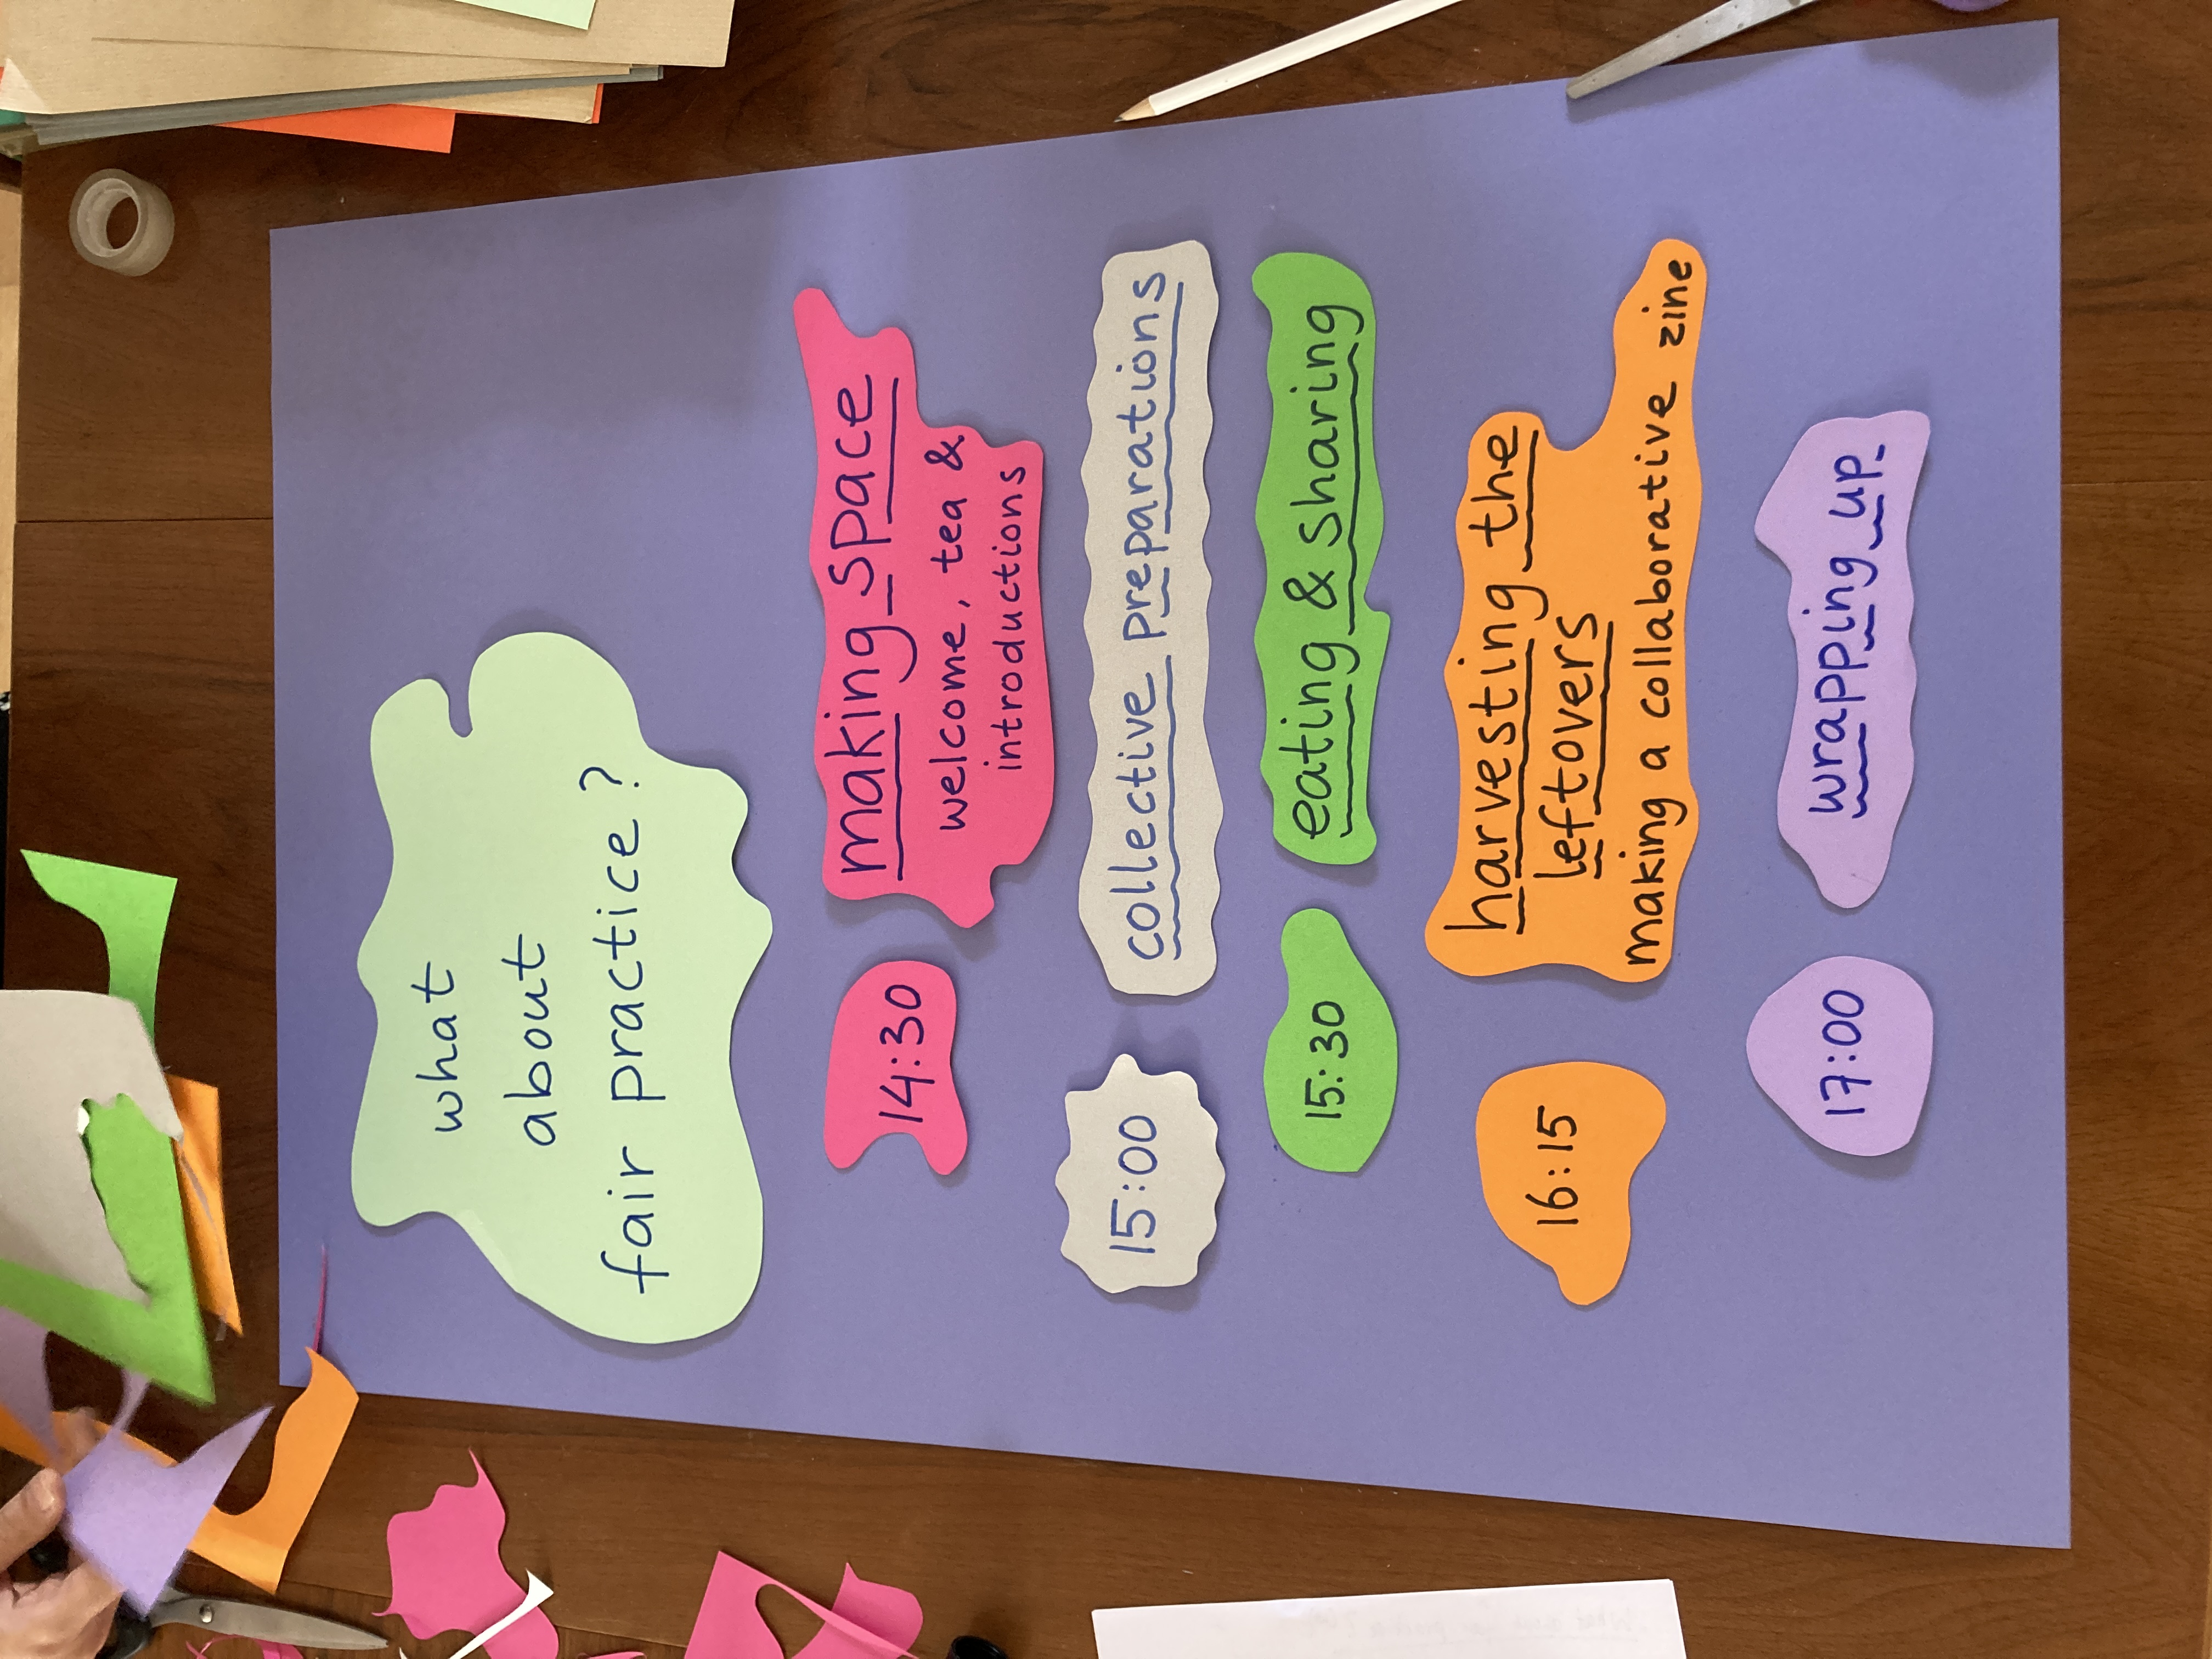 what
about
fair practice?
14:30
making space
welcome, tea &
introductions
15:00
collective preparations
15:30
eating & sharing
16:15
harvesting the
leftovers
making a collaborative zine
17:00
wrapping up